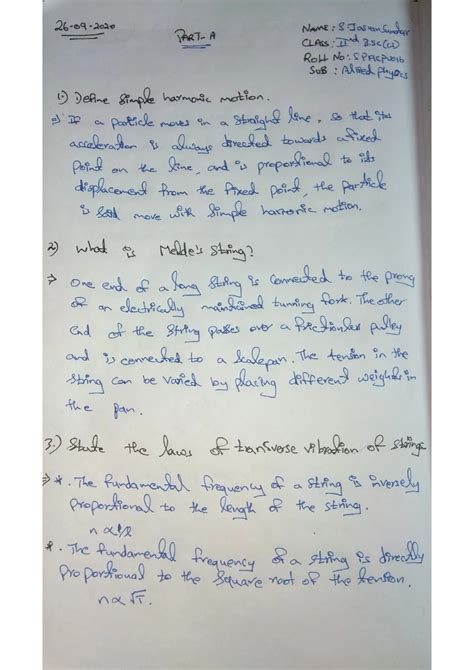 26-09-2020
PART-A
Name: S. Jason Sundar
CLASS: IInd B.Sc (CS)
Roll No:
SUB: Allied Physics
1.) Define Simple harmonic motion.
⇒ If a particle moves in a straight line, so that its
acceleration is always directed towards a fixed
point on the line, and is proportional to its
displacement from the fixed point, the particle
is said move with Simple harmonic motion.
2) What is Melde's String?
⇒ One end of a long string is connected to the prong
of an electrically maintained tunning fork. The other
end of the string passes over a frictionless pulley
and is connected to a scalepan. The tension in the
string can be varied by placing different weights in
the pan.
3.) State the laws of transverse vibration of strings
⇒ *. The fundamental frequency of a string is inversely
proportional to the length of the string.
n ∝ 1/l
*. The fundamental frequency of a string is directly
proportional to the square root of the tension.
n ∝ √T.